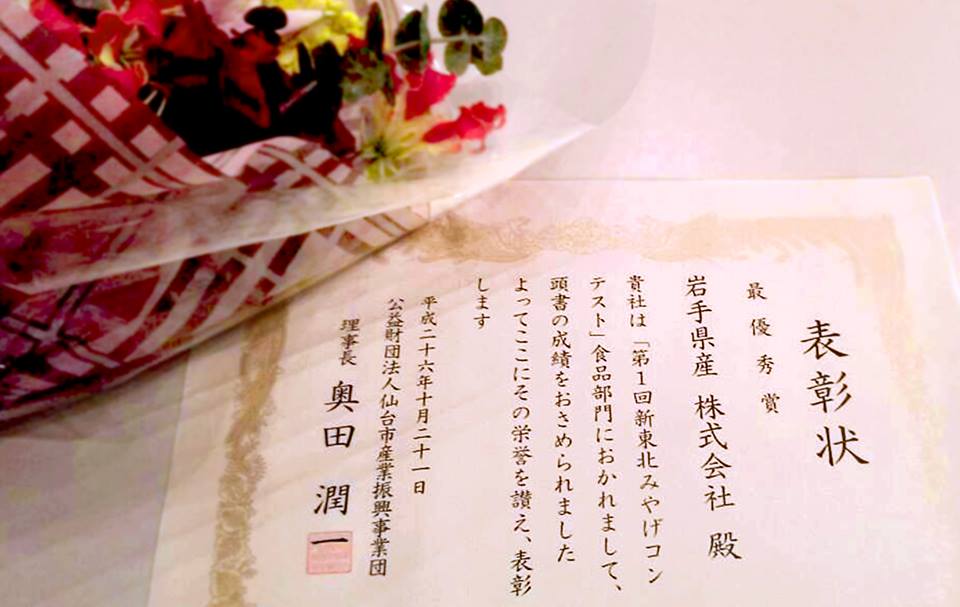 表彰状
最優秀賞
岩手県産 株式会社 殿
貴社は「第1回新東北みやげコン
テスト」食品部門におかれまして、
頭書の成績をおさめられました
よってここにその栄誉を讃え、表彰
します
平成二十六年十月二十一日
公益財団法人仙台市産業振興事業団
理事長 奥田 潤一